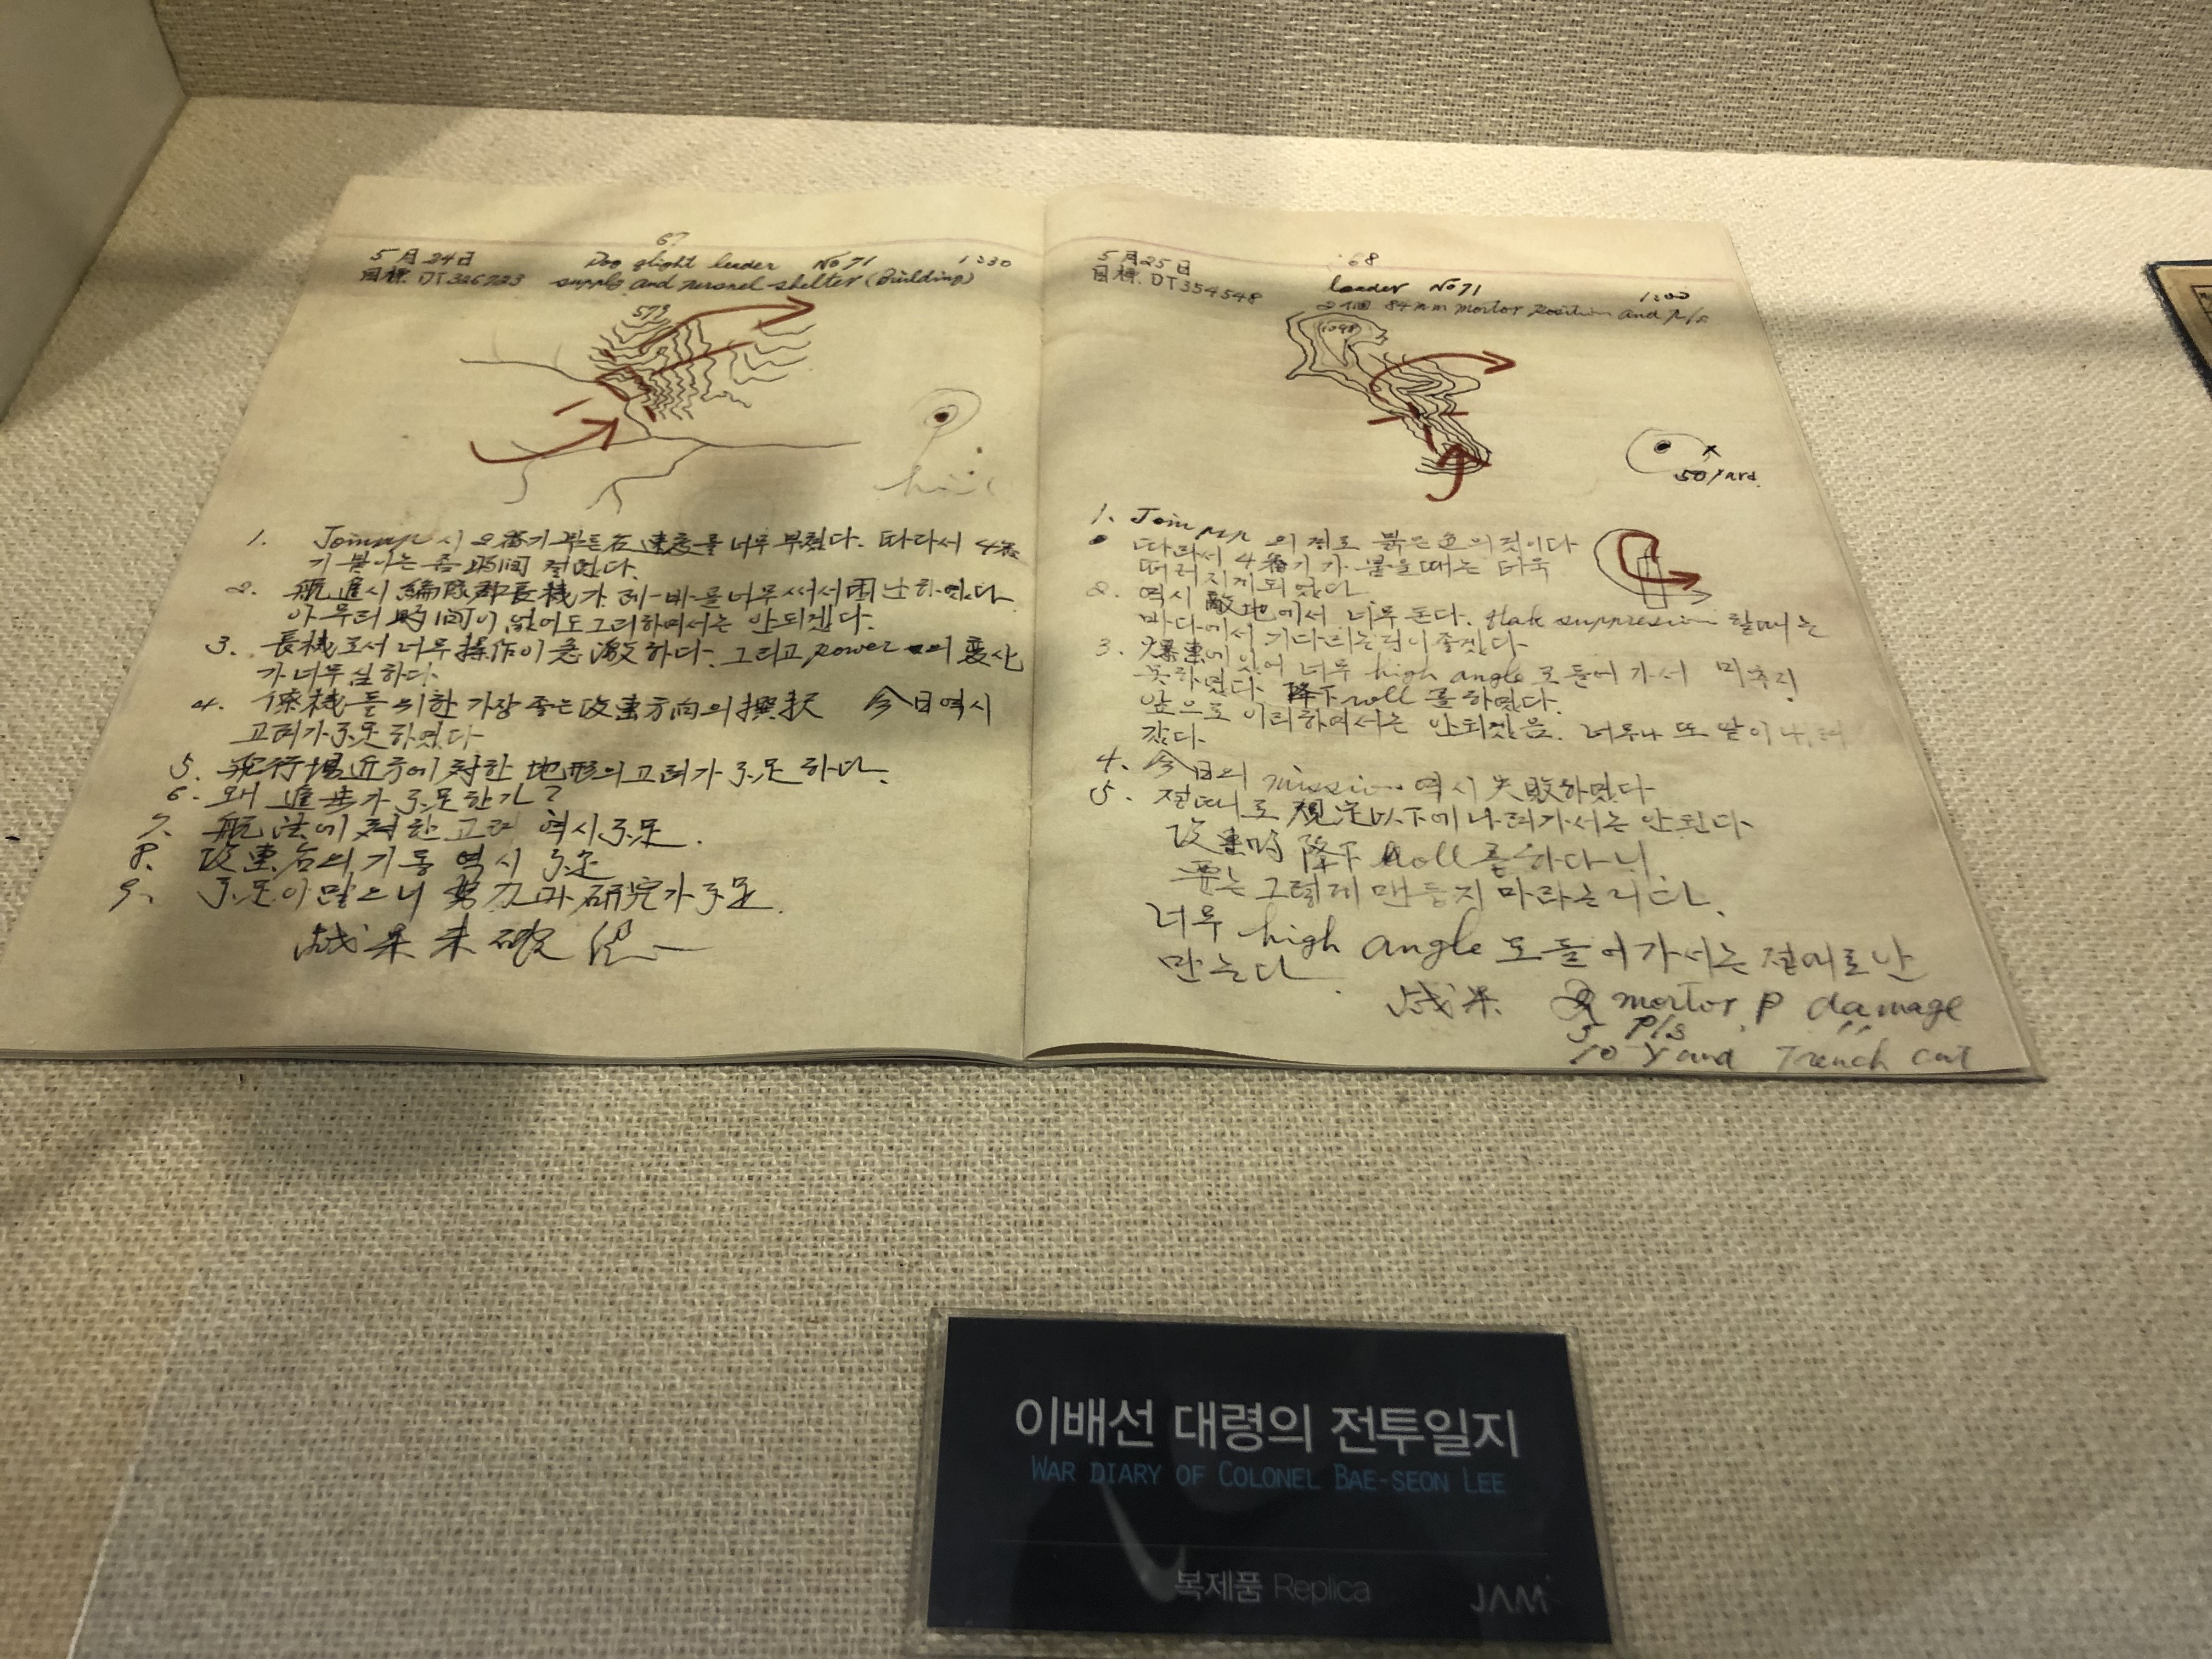 67
5月24日 Dog flight leader No 71 1230
目標. DT326723 supply and personel shelter (Building)
572
1. Joinup시 2番기 速度를 너무 부쳤다. 따라서 4番
기 붙이는 좀 時間 걸렸다.
2. 航進시 編隊群長機가 레-바를 너무 써서 困난하였다
아무리 時間이 없어도 그리하여서는 안되겠다.
3. 長機로서 너무 操作이 急激하다. 그리고 power의 変化
가 너무 심하다.
4. 僚機들을 위한 가장 좋은 攻擊方向의 撰択 今日 역시
고려가 不足하였다
5. 飛行場近方에 対한 地形의 고려가 不足하다.
6. 왜 進步가 不足한가?
7. 航法에 対한 고려 역시 不足.
8. 攻擊后의 기동 역시 不足
9. 不足이 많으니 努力과 研究가 不足.
战果 未確認
68
5月25日 leader No 71 1200
目標. DT354548 2個 84mm mortor position and P/s
50 yard.
1. Join up의 경로 붉은 色의 것이다
따라서 4番기가 붙을때는 더욱
떠러지게 되였다
2. 역시 敵地에서 너무 돈다. flak suppression 할때는
바다에서 기다리는 것이 좋겠다
3. 爆擊에 있어 너무 high angle로 들어가서 마추지
못하였다 降下 roll를 하였다.
앞으로 이리하여서는 안되겠음. 너무나 또 많이 나려
갔다.
4. 今日의 mission 역시 失敗하였다
5. 절때로 規定以下에 나려가서는 안된다
攻擊時 降下 Roll를 하다니
要는 그렇게 맨들지 마라는 거다.
너무 high angle로 들어가서는 절때로 안
만는다.
战果. 2 mortor P damage
5 P/s "
10 Yard Trench cut
이배선 대령의 전투일지
WAR DIARY OF COLONEL BAE-SEON LEE
복제품 Replica JAM